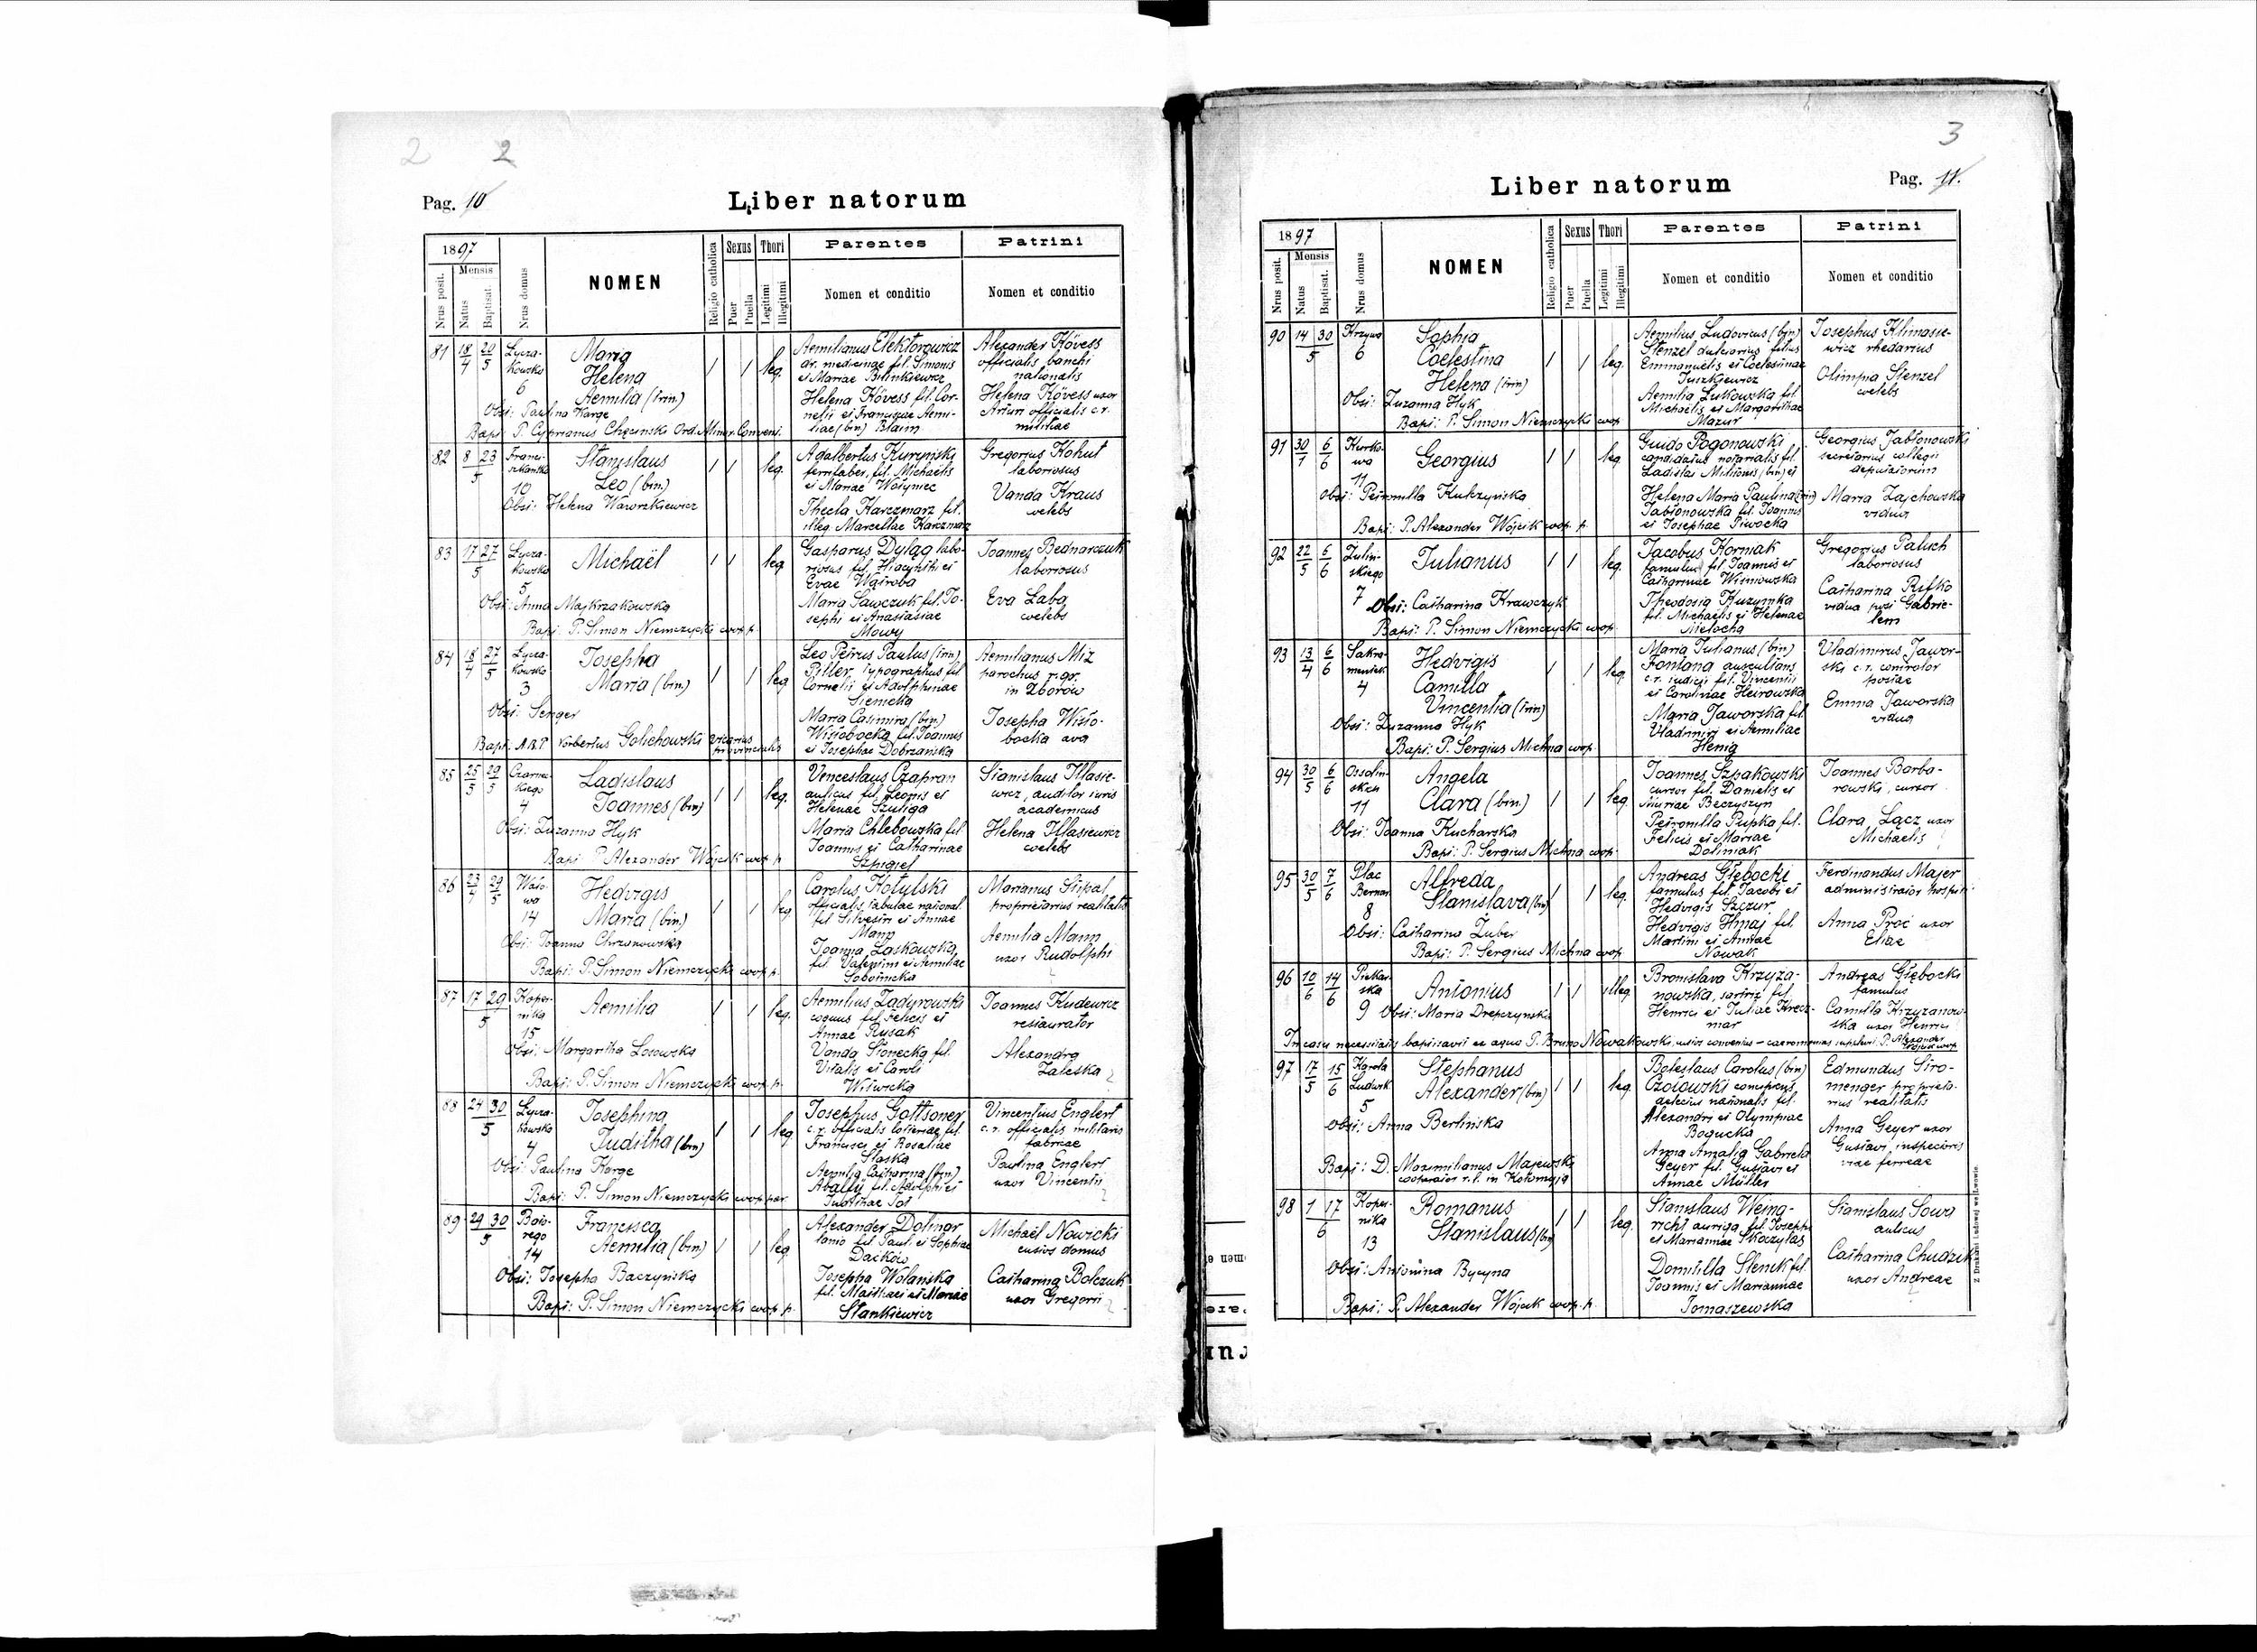 2 2
Pag. 10
Liber natorum
1897
Nrus posit.
Mensis
Natus
Baptisat.
Nrus domus
NOMEN
Religio catholica
Sexus
Puer
Puella
Thori
Legitimi
Illegitimi
Parentes
Nomen et conditio
Patrini
Nomen et conditio
81 18/4 20/5 Lycza-
kowska
6
Maria
Helena
Aemilia (trin)
1 1 leg.
Obst: Paulina Karge
Bapt: P. Cyprianus Chęciński Ord. Minor. Convent.
Aemilianus Elektorowicz
dr. medicinae fil. Simonis
et Mariae Bilinkiewicz
Helena Kövess fil. Cor-
nelii et Franciscae Aemi-
liae (bin) Blaim
Alexander Kövess
officialis banchi
nationalis
Helena Kövess uxor
Artur officialis c.r.
militiae
82 8 23/5 Franci-
szkańska
10
Stanislaus
Leo (bin)
1 1 leg.
Obst: Helena Wawrzkiewicz
Adalbertus Kuryński
ferrifaber, fil. Michaelis
et Mariae Wołyniec
Thecla Karczmarz fil.
illeg. Marcellae Karczmarz
Gregorius Kohut
laboriosus
Vanda Kraus
coelebs
83 17 27/5 Lycza-
kowska
5
Michaël
1 1 leg
Obst: Anna Majkrzakowska
Bapt: P. Simon Niemczycki coop. p.
Gasparus Dyląg labo-
riosus fil. Hiacynthi et
Evae Wątroba
Maria Sawczuk fil. Jo-
sephi et Anastasiae
Mowy
Joannes Bednarczuk
laboriosus
Eva Laba
coelebs
84 18/4 27/5 Lycza-
kowska
3
Josepha
Maria (bin)
1 1 leg
Obst: Senger
Bapt: A.R.P. Norbertus Golichowski vicarius
provincialis
Leo Petrus Paulus (trin)
Piller, typographus fil
Cornelii et Adolphinae
Sienicka
Maria Casimira (bin)
Wisłobocka fil. Joannis
et Josephae Dobrzańska
Aemilianus Miz
parochus r. gr.
in Zborów
Josepha Wisło-
bocka ava
85 25/5 29/5 Czarnec-
kiego
4
Ladislaus
Joannes (bin)
1 1 leg.
Obst: Zuzanna Hyk
Bapt: P. Alexander Wójcik coop. p
Venceslaus Czapran
aulicus fil. Leonis et
Helenae Szuliga
Maria Chlebowska fil
Joannis et Catharinae
Szpigiel
Stanislaus Illasie-
wicz, auditor iuris
academicus
Helena Illasiewicz
coelebs
86 23/4 29/5 Wało-
wa
14
Hedvigis
Maria (bin)
1 1 leg
Obst: Joanna Chrzanowska
Bapt: P. Simon Niemczycki coop. p.
Carolus Kotylski
officialis tabulae national
fil Silvestri et Annae
Mann
Joanna Laskowska,
fil. Valentini et Aemiliae
Sobotnicka
Marianus Stipal
proprietarius realitatis
Aemilia Mann
uxor Rudolphi
87 17 29/5 Koper-
nika
15
Aemilia
1 1 leg.
Obst: Margaritha Losowska
Bapt: P. Simon Niemczycki coop. p.
Aemilius Zadyrowski
coquus fil. Felicis et
Annae Rusak
Vanda Słonecka fil.
Vitalis et Caroli
Witwicka
Joannes Kudewicz
restaurator
Alexandra
Zaleska
88 24 30/5 Lycza-
kowska
4
Josephina
Juditha (bin)
1 1 leg
Obst: Paulina Karge
Bapt: P. Simon Niemczycki coop. par
Josephus Gottsoner
c.r. officialis loteriae fil.
Francisci et Rosaliae
Slaska
Aemilia Catharina (bin)
Abaffy fil. Adolphi et
Judithae Tot
Vincentius Englert
c.r. officialis militaris
fabricae
Paulina Englert
uxor Vincentii
89 29 30/5 Bato-
rego
14
Francisca
Aemilia (bin)
1 1 leg
Obst: Josepha Baczyńska
Bapt: P. Simon Niemczycki coop. p.
Alexander Dolinar
lanio fil. Paul. et Sophiae
Daćków
Josepha Wolańska
fil. Matthaei et Mariae
Stankiewicz
Michaël Nowicki
custos domus
Catharina Bolczuk
uxor Gregorii
3
Liber natorum
Pag. 11.
1897
Nrus posit.
Mensis
Natus
Baptisat.
Nrus domus
NOMEN
Religio catholica
Sexus
Puer
Puella
Thori
Legitimi
Illegitimi
Parentes
Nomen et conditio
Patrini
Nomen et conditio
90 14 30/5 Krzywa
6
Sophia
Coelestina
Helena (trin)
1 1 leg.
Obst: Zuzanna Hyk
Bapt: P. Simon Niemczycki coop
Aemilius Ludovicus (bin)
Stenzel dulciarius filius
Emmanuelis et Coelestinae
Juszkiewicz
Aemilia Lutkowska fil.
Michaelis et Margarithae
Mazur
Josephus Klimasie-
wicz rhedarius
Olimpia Stenzel
coelebs
91 30/1 6/6 Kurko-
wa
11
Georgius
1 1 leg
Obst: Petronilla Kulczyńska
Bapt: P. Alexander Wójcik coop. p.
Guido Pogonowski
candidatus notarialis fil.
Ladislai Militonis (bin) et
Helena Maria Paulina (trin)
Jabłonowska fil. Joannis
et Josephae Piwocka
Georgius Jabłonowski
secretarius collegii
deputatorum
Maria Zajchowska
vidua
92 22/5 6/6 Zuliń-
skiego
7
Julianus
1 1 leg.
Obst: Catharina Krawczyk
Bapt: P. Simon Niemczycki coop.
Jacobus Korniak
famulus fil Joannis et
Catharinae Wiśniowska
Theodosia Kuzymka
fil. Michaelis et Helenae
Mielocha
Gregorius Paluch
laboriosus
Catharina Rifko
vidua post Gabrie-
lem
93 13/4 6/6 Sakra-
mentek
4
Hedvigis
Camilla
Vincentia (trin)
1 1 leg
Obst: Zuzanna Hyk
Bapt: P. Sergius Michna coop.
Maria Julianus (bin)
Fontana auscultans
c.r. iudicii fil. Vincentii
et Carolinae Heirowska
Maria Jaworska fil.
Vladimiri et Aemiliae
Henig
Vladimirus Jawor-
ski c.r. controlor
postae
Emma Jaworska
vidua
94 30/5 6/6 Ossoliń-
skich
11
Angela
Clara (bin.)
1 1 leg.
Obst: Joanna Kucharska
Bapt: P. Sergius Michna coop.
Joannes Szpakowski
cursor fil. Danielis et
Mariae Beczyszyn
Petronilla Pupka fil.
Felicis et Mariae
Doliniak
Joannes Barba-
rowski, cursor
Clara Łącz uxor
Michaelis
95 30/5 7/6 Plac
Bernar.
8
Alfreda
Stanislava (bin)
1 1 leg.
Obst: Catharina Żuber
Bapt: P. Sergius Michna coop
Andreas Głębocki
famulus fil. Jacobi et
Hedvigis Szczur
Hedvigis Hnaj fil.
Martini et Annae
Nowak
Ferdinandus Majer
administrator hospit:
Anna Proć uxor
Eliae
96 10/6 14/6 Piekar-
ska
9
Antonius
1 1 illeg.
Obst: Maria Drepczyńska
Bronislava Krzyża-
nowska, sartrix fil.
Henrici et Juliae Krecz-
mar
Andreas Głębocki
famulus
Camilla Krzyżanow-
ska uxor Henrici
In casu necessitatis baptisavit ex aqua P. Bruno Nowakowski, custos conventus – caeremonias supplevit: P. Alexander
Wójcik coop.
97 17/5 15/6 Karola
Ludwik
5
Stephanus
Alexander (bin)
1 1 leg
Obst: Anna Berlińska
Bapt: D. Maximilianus Majewski
cooperator r.l. in Kołomyja
Boleslaus Carolus (bin)
Czołowski concipiens
delectus nationalis fil.
Alexandri et Olympiae
Bogucka
Anna Amalia Gabriela
Geyer fil. Gustavi et
Annae Müller
Edmundus Stro-
menger proprieta-
rius realitatis
Anna Geyer uxor
Gustavi, inspectoris
viae ferreae
98 1 17/6 Koper-
nika
13
Romanus
Stanislaus (bin)
1 1 leg.
Obst: Antonina Bycyna
Bapt: P. Alexander Wójcik coop. p.
Stanislaus Weing-
richt auriga, fil. Josephi
et Mariannae Skoczylas
Domitilla Slenik fil
Joannis et Mariannae
Tomaszewska
Stanislaus Sowa
aulicus
Catharina Chudzik
uxor Andreae
Z Drukarni Ludowej we Lwowie.